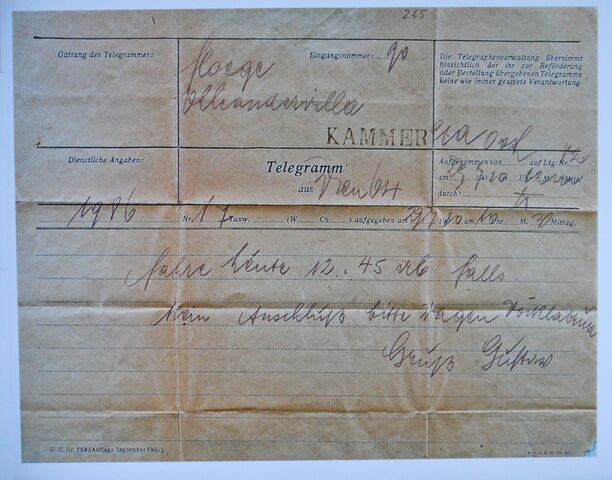 265
Gattung des Telegrammes:
Eingangsnummer: 90
Die Telegraphenverwaltung übernimmt
hinsichtlich der ihr zur Beförderung
oder Bestellung übergebenen Telegramme
keine wie immer geartete Verantwortung.
Oleandervilla
KAMMER
Dienstliche Angaben:
Telegramm
aus
Aufgenommen von auf Ltg. Nr. 42
am
durch:
1986 Nr. 17 Taxw. (W Ch ) aufgegeben am Uhr M. Mittag.
fahre heute 12.45 falls
kein Anschluß bitte Wagen Vöcklabruck
Gruß Gustav
D. S. Nr. 769 (Auflage September 190